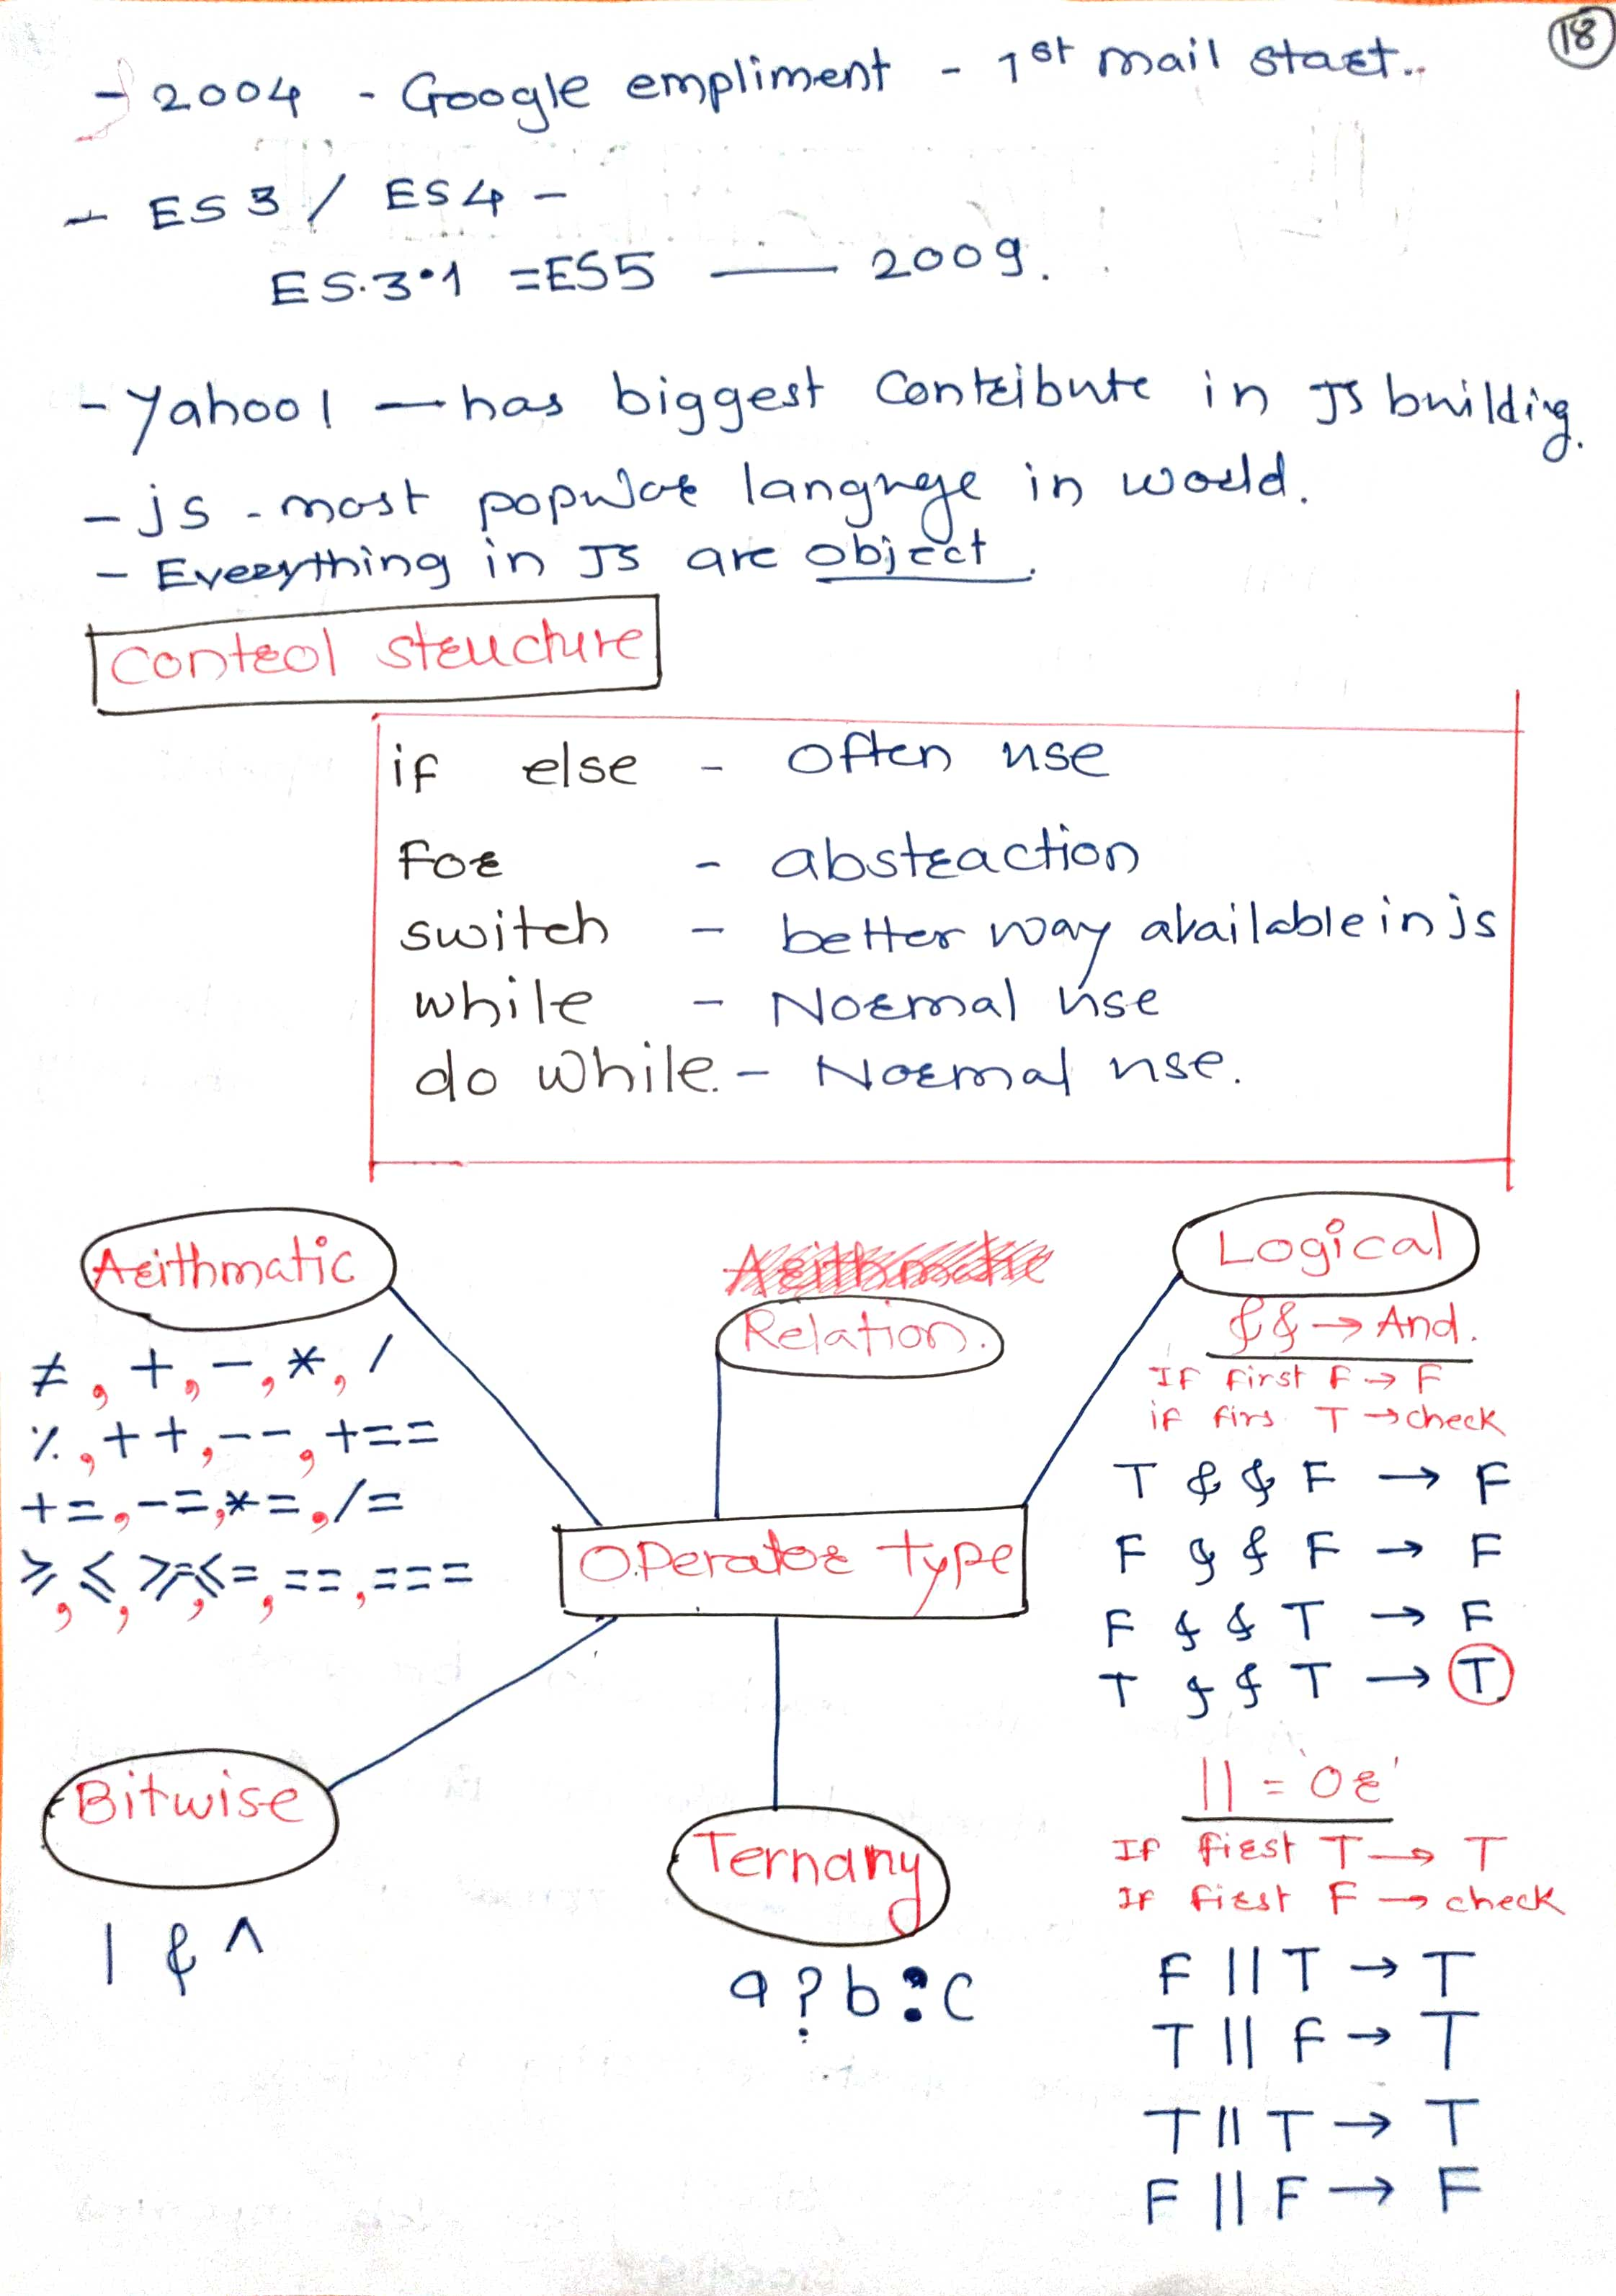 18
- 2004 - Google empliment - 1st mail start..
- ES 3 / ES4 -
ES.3.1 = ES5 — 2009.
- Yahoo! — has biggest contribute in JS building.
- js - most popular language in world.
- Everything in JS are object.
Control structure
if else - often use
For - abstraction
switch - better way available in js
while - Normal use
do while. - Normal use.
Arithmatic
≠, +, -, *, /
%, ++, --, +==
+=, -=, *=, /=
>, <, >=, <=, ==, ===
Relation.
Logical
&& → And.
If first F → F
if firs T → check
T && F → F
F && F → F
F && T → F
T && T → T
|| = 'Or'
If first T → T
If first F → check
F || T → T
T || F → T
T || T → T
F || F → F
Operator type
Bitwise
| & ^
Ternany
a ? b : c